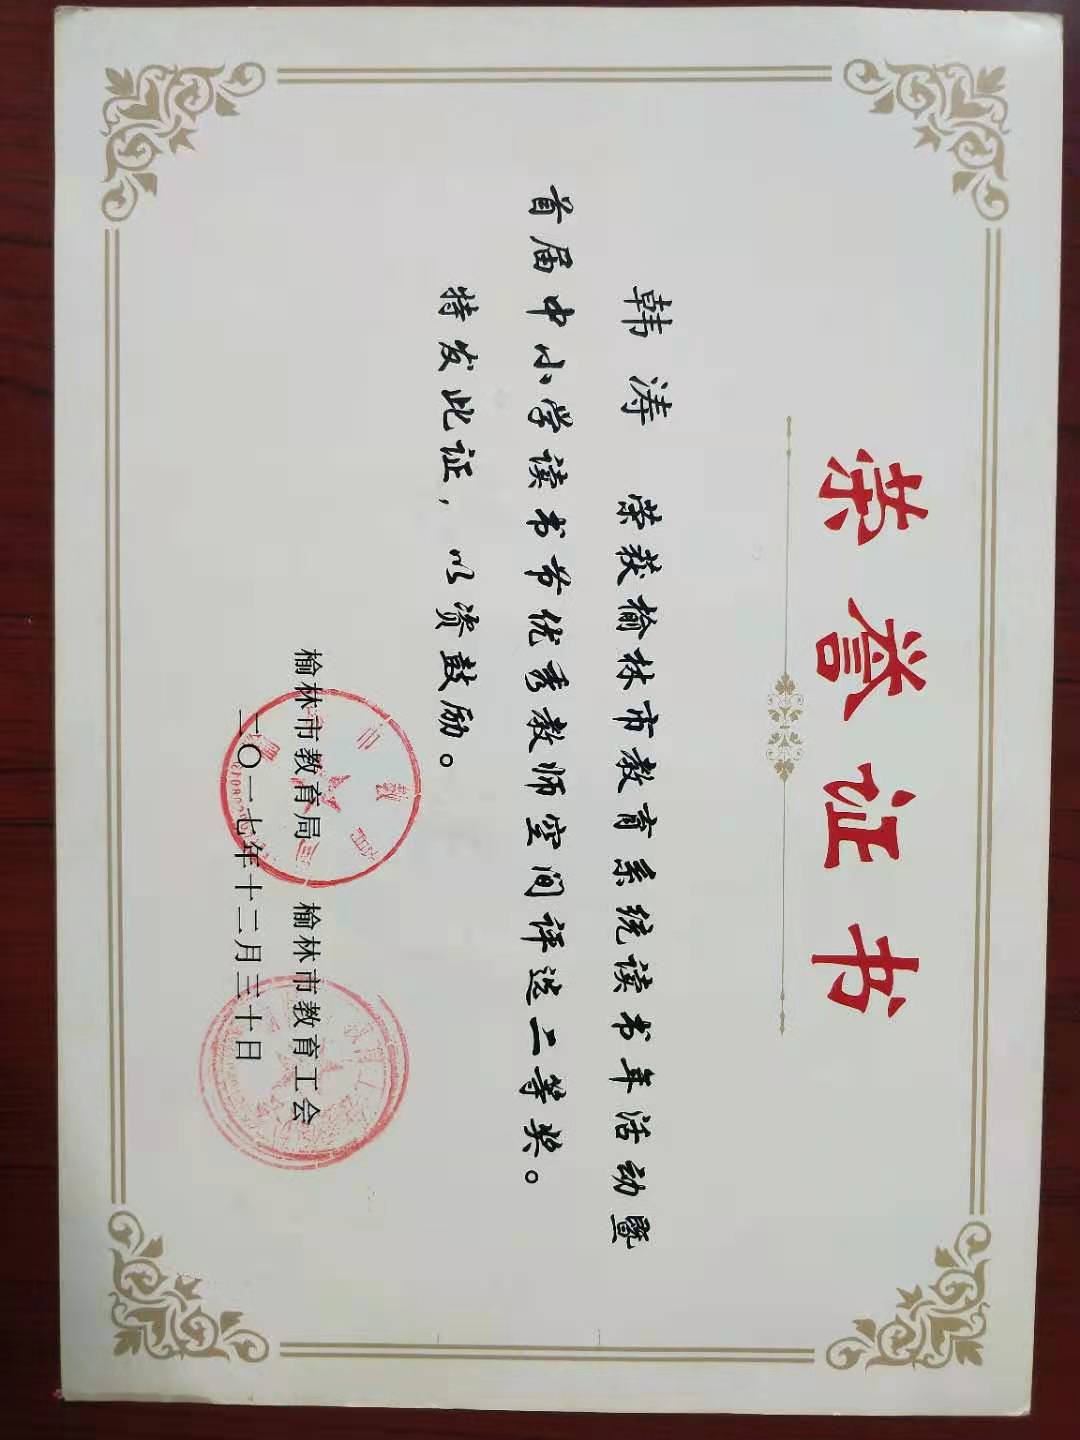 荣誉证书
韩涛 荣获榆林市教育系统读书年活动暨
首届中小学读书节优秀教师空间评选二等奖。
特发此证，以资鼓励。
榆林市教育局 榆林市教育工会
二〇一七年十二月三十日